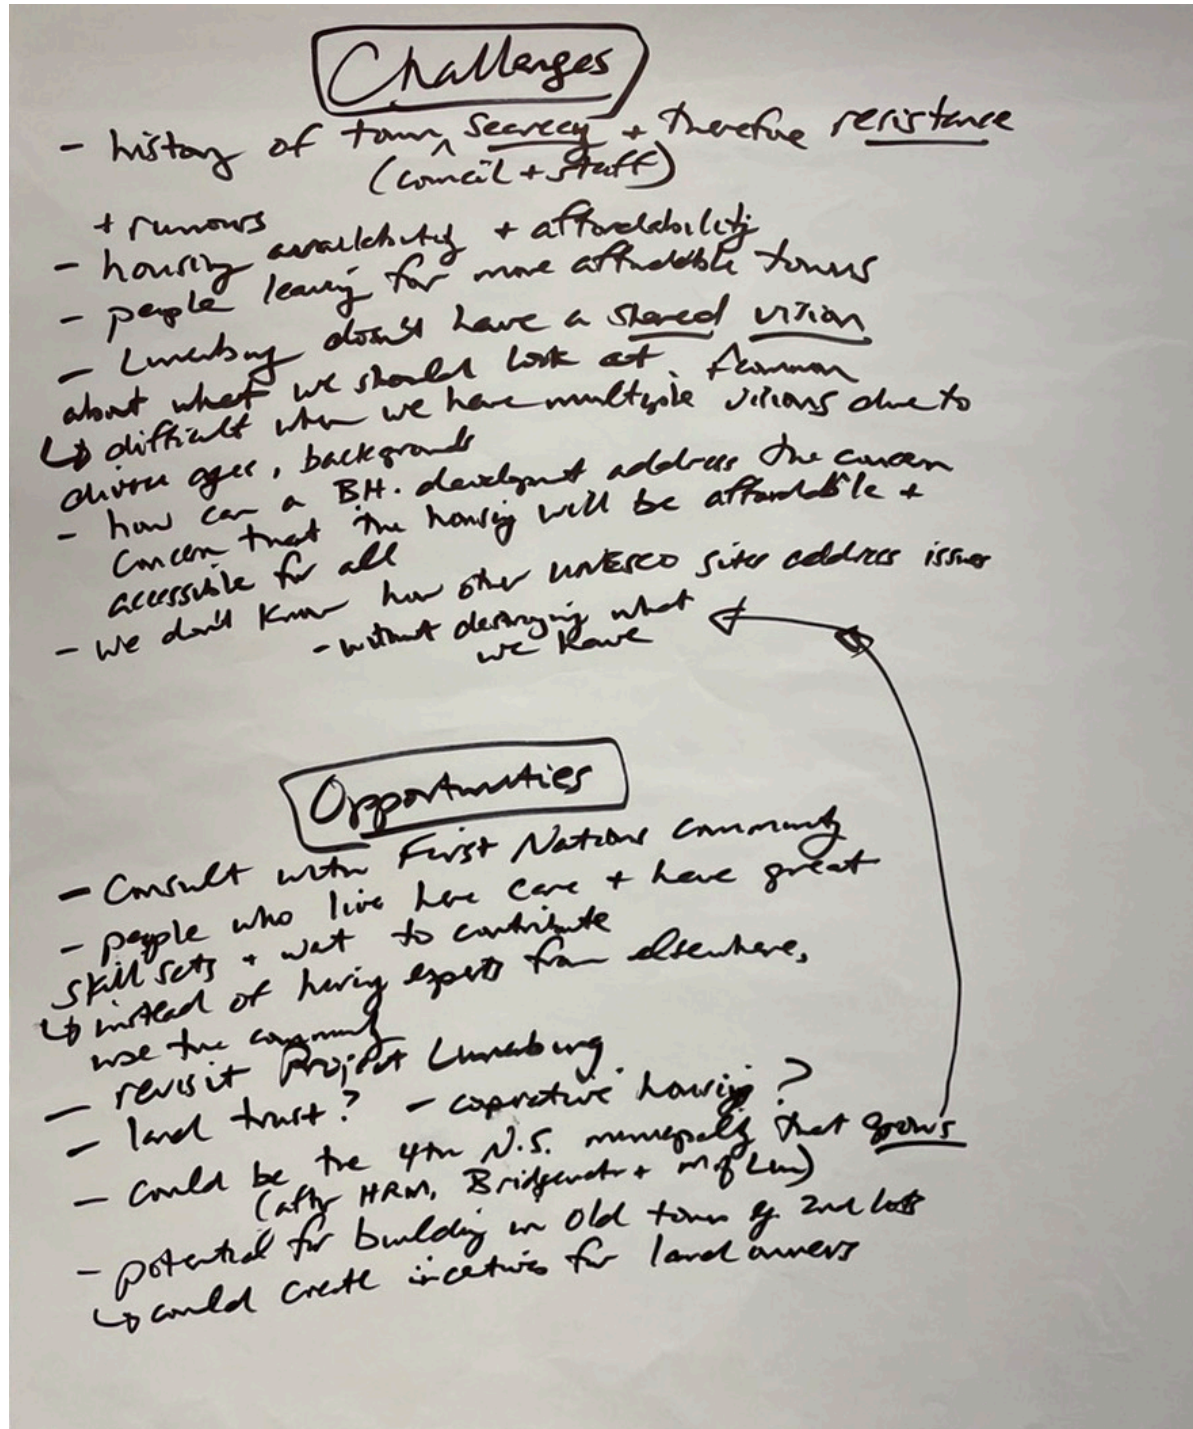 Challenges
- history of town secrecy + therefore resistance
^
(council + staff)
+ rumours
- housing availability + affordability
- people leaving for more affordable towns
- Lunenburg doesn't have a shared vision
about what we should look at. / common
↳ difficult when we have multiple visions due to
diverse ages, backgrounds
- how can a BH. development address the concern
concern that the housing will be affordable +
accessible for all
- we don't know how other UNESCO sites address issues
- without destroying what
we have
Opportunities
- Consult with First Nations Community
- people who live here care + have great
skill sets + wat to contribute
↳ instead of hiring experts from elsewhere,
use the community
- revisit Project Lunenburg
- land trust? - coprative housing?
- could be the 4th N.S. municipality that grows
(after HRM, Bridgewater + M of Lun)
- potential for building in Old town eg. 2nd lots
↳ could create incetives for land owners